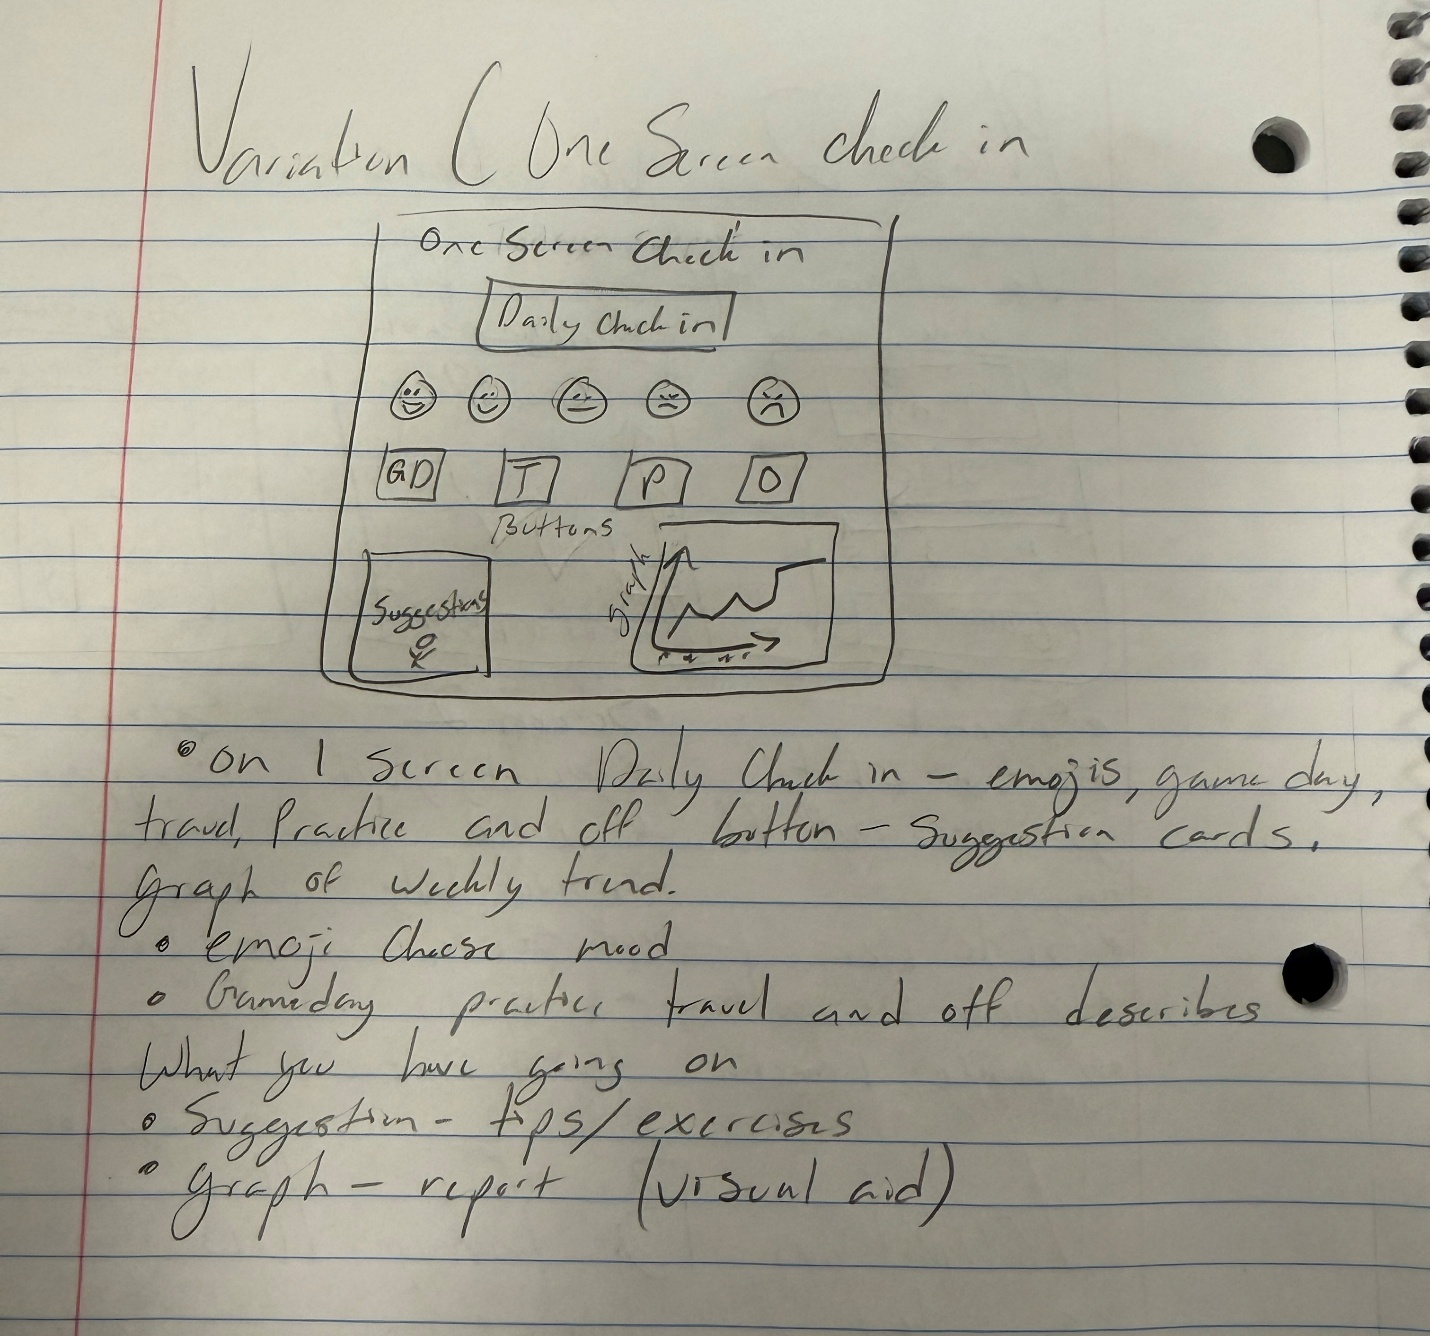 Variation ( One Screen check in
One Screen Check in
Daily Check in
GD T P O
Buttons
Suggestions
graph
• on 1 screen Daily Check in – emojis, game day,
travel, Practice and off button – Suggestion cards.
graph of weekly trend.
• emoji Choose mood
• Gameday practice travel and off describes
What you have going on
• Suggestion – tips/exercises
• graph – report (visual aid)